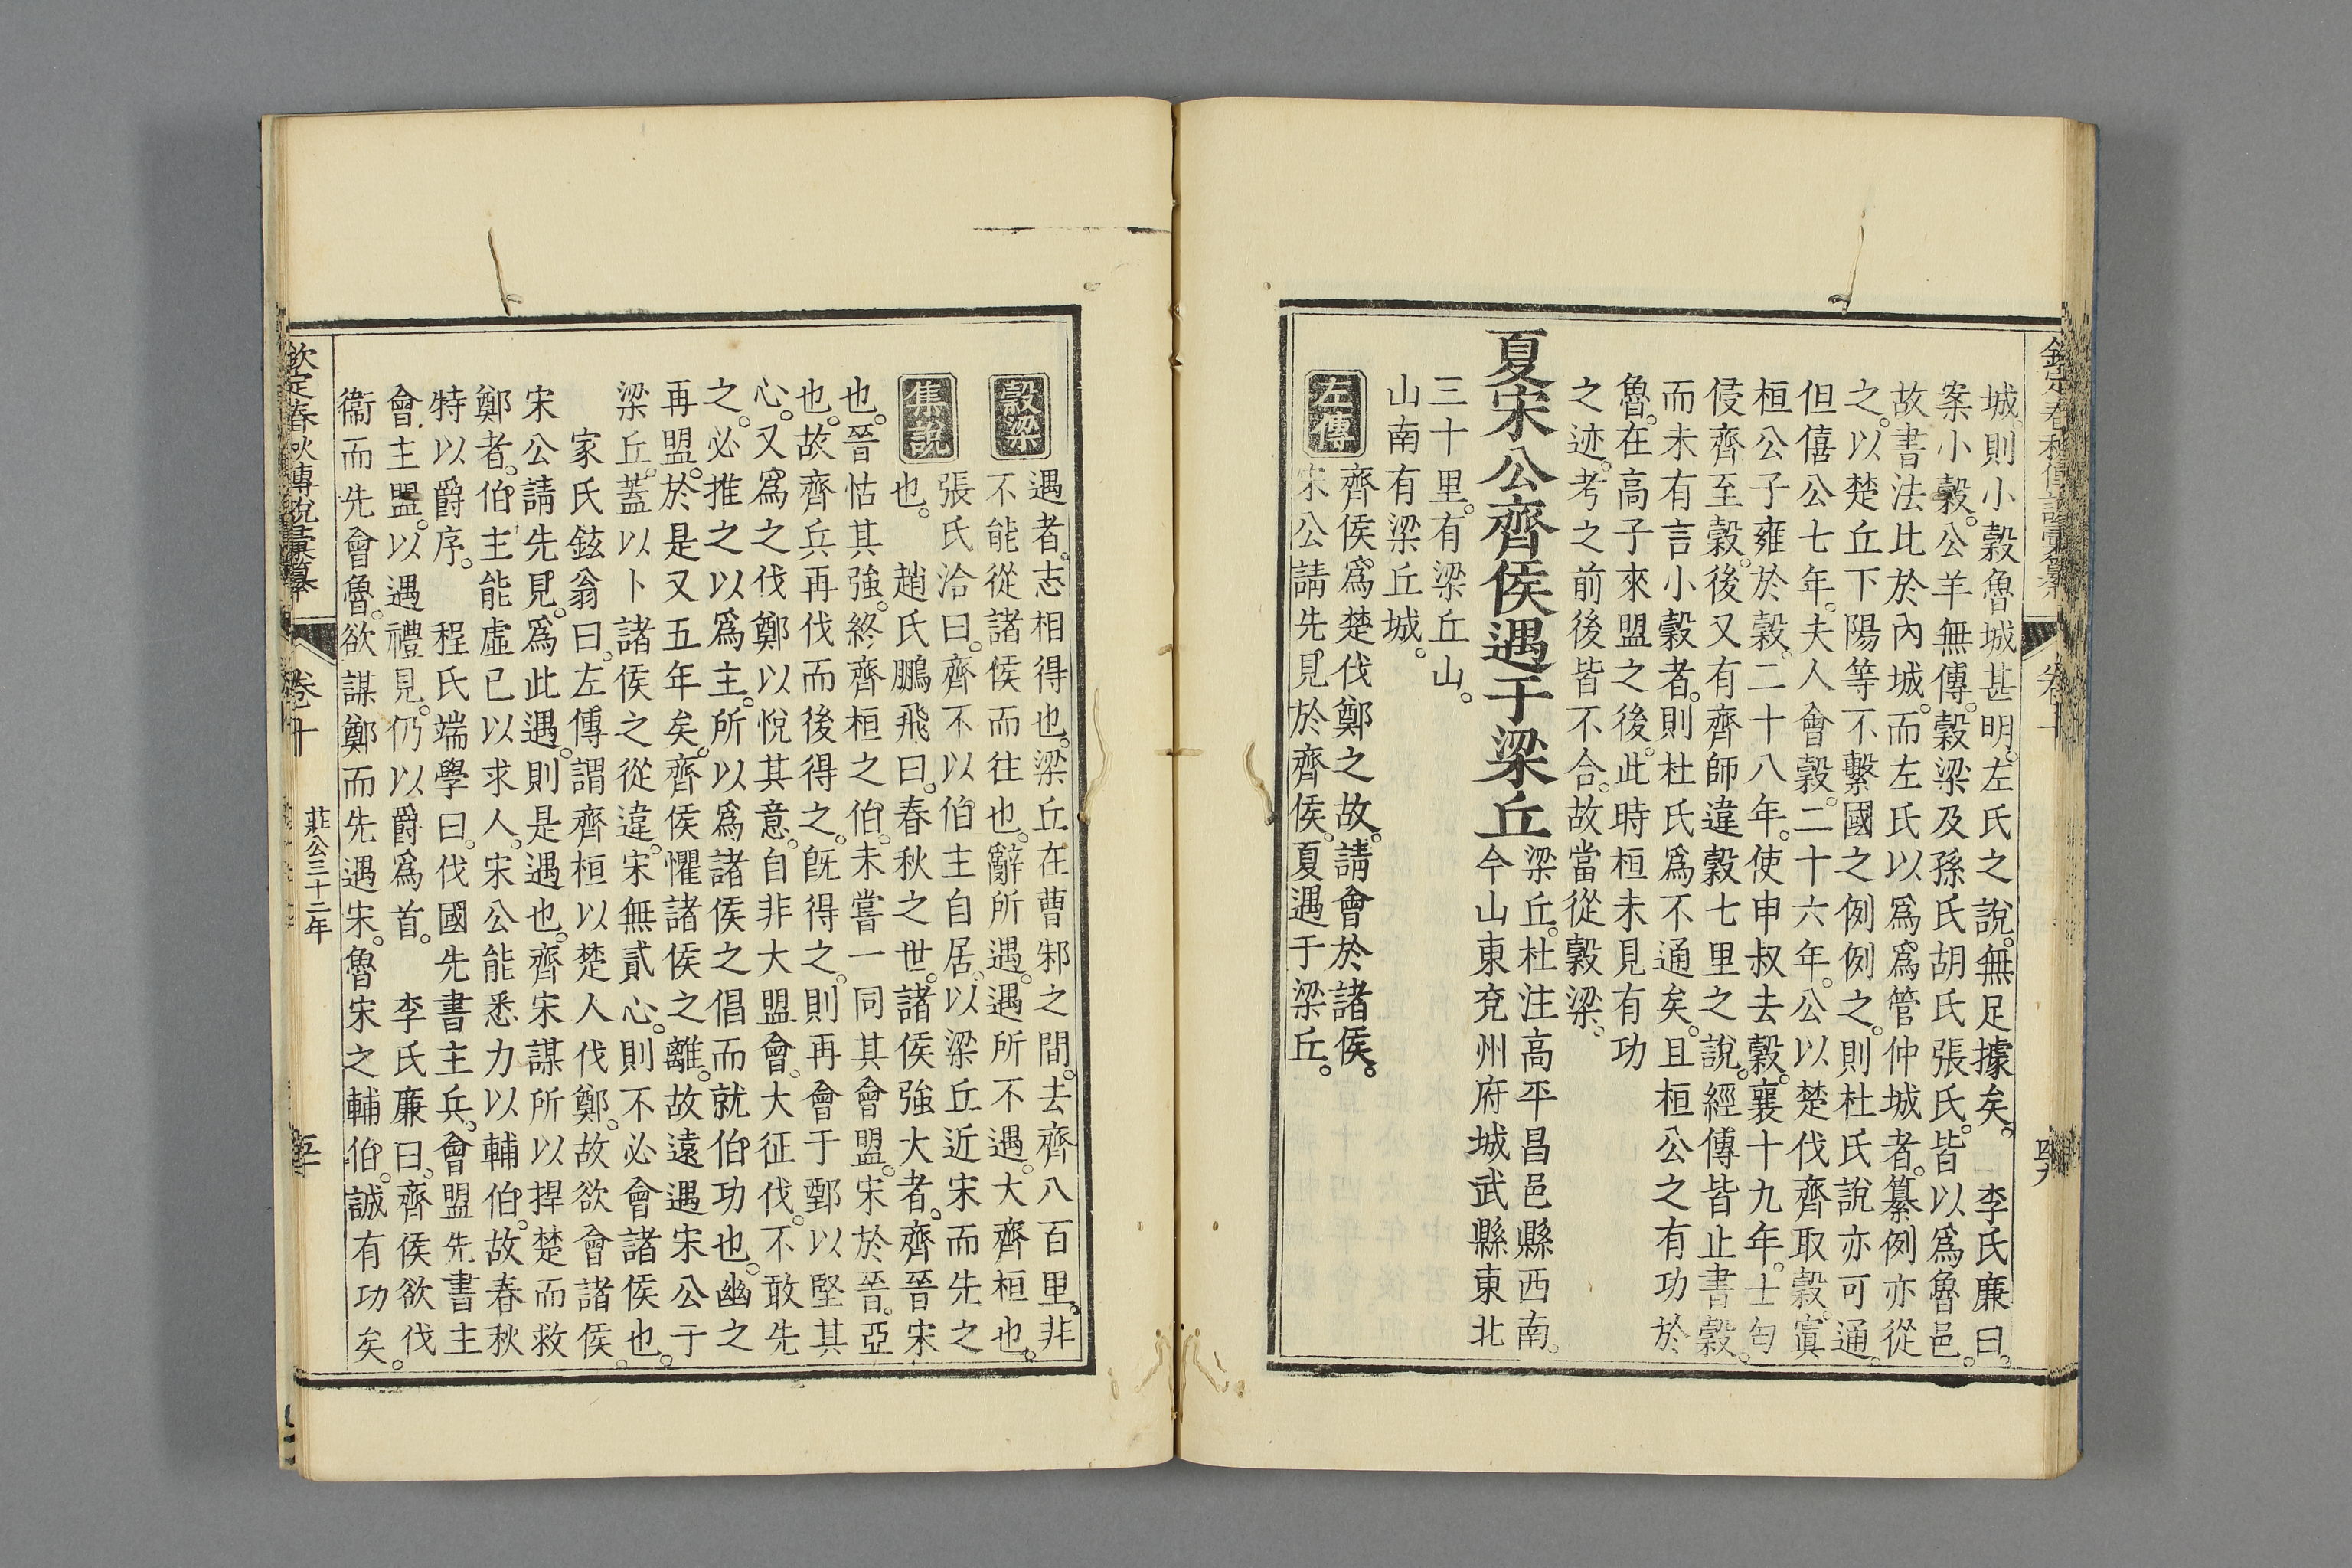 欽定春秋傳說彙纂 卷十
城則小穀魯城甚明。左氏之說。無足據矣。 李氏廉曰。
案小穀。公羊無傳。穀梁及孫氏胡氏張氏。皆以爲魯邑。
故書法比於內城。而左氏以爲爲管仲城者。纂例亦從
之。以楚丘下陽等不繫國之例例之。則杜氏說亦可通。
但僖公七年。夫人會穀。二十六年。公以楚伐齊取穀。寘
桓公子雍於穀。二十八年。使申叔去穀。襄十九年。士匄
侵齊至穀。後又有齊師違穀七里之說。經傳皆止書穀。
而未有言小穀者。則杜氏爲不通矣。且桓公之有功於
魯。在高子來盟之後。此時桓未見有功
之迹。考之前後皆不合。故當從穀梁。
夏宋公齊侯遇于梁丘
梁丘。杜注高平昌邑縣西南。
今山東兗州府城武縣東北
三十里。有梁丘山。
山南有梁丘城。
左傳
齊侯。爲楚伐鄭之故。請會於諸侯。
宋公請先見於齊侯。夏遇于梁丘。
穀梁
遇者。志相得也。梁丘在曹邾之間。去齊八百里。非
不能從諸侯而往也。辭所遇。遇所不遇。大齊桓也。
集說
張氏洽曰。齊不以伯主自居。以梁丘近宋而先之
也。 趙氏鵬飛曰。春秋之世。諸侯強大者。齊晉宋
也。晉怙其強。終齊桓之伯。未嘗一同其會盟。宋於晉。亞
也。故齊兵再伐而後得之。旣得之。則再會于鄄以堅其
心。又爲之伐鄭以悅其意。自非大盟會。大征伐。不敢先
之。必推之以爲主。所以爲諸侯之倡而就伯功也。幽之
再盟。於是又五年矣。齊侯懼諸侯之離。故遠遇宋公于
梁丘。蓋以卜諸侯之從違。宋無貳心。則不必會諸侯也。
家氏鉉翁曰。左傳謂齊桓以楚人伐鄭。故欲會諸侯。
宋公請先見。爲此遇。則是遇也。齊宋謀所以捍楚而救
鄭者。伯主能虛已以求人。宋公能悉力以輔伯。故春秋
特以爵序。 程氏端學曰。伐國先書主兵。會盟先書主
會主盟。以遇禮見。仍以爵爲首。 李氏廉曰。齊侯欲伐
衞而先會魯。欲謀鄭而先遇宋。魯宋之輔伯。誠有功矣。
欽定春秋傳說彙纂 卷十 莊公三十二年